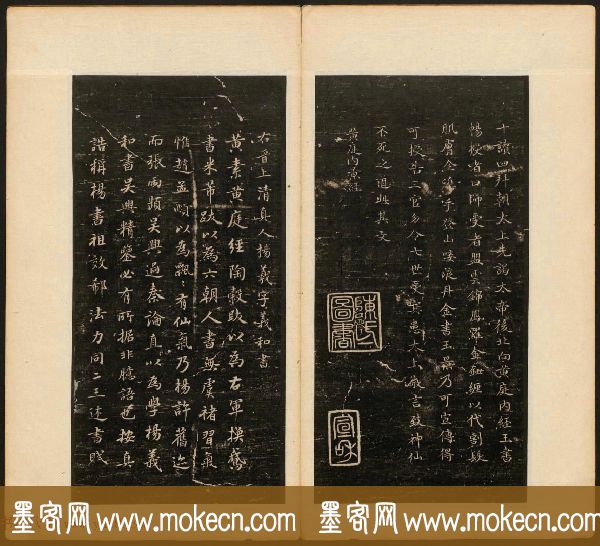 十讀四拜朝太上先謁太帝後北向黃庭內經玉書
暢授者曰師受者盟雲錦鳳羅金鈕纏以代割髮
肌膚全携手登山歃液丹金書玉景乃可宣傳得
可授告三官勿令七世受冥患太上微言致神仙
不死之道此其文
黃庭內景經
陳氏圖書
宣和
右晉上清真人楊羲字羲和書
黃素黃庭經陶穀跋以為右軍換鵞
書米芾跋以為六朝人書無虞褚習氣
惟趙孟頫以為飄飄有仙氣乃楊許舊迹
而張雨題吳興過秦論直以為學楊羲
和書吳興精鑒必有所據非臆語也按真
誥稱楊書祖效郗法力同二王述書賦
墨客网 www.mokecn.com 墨客网 www.mokecn.com